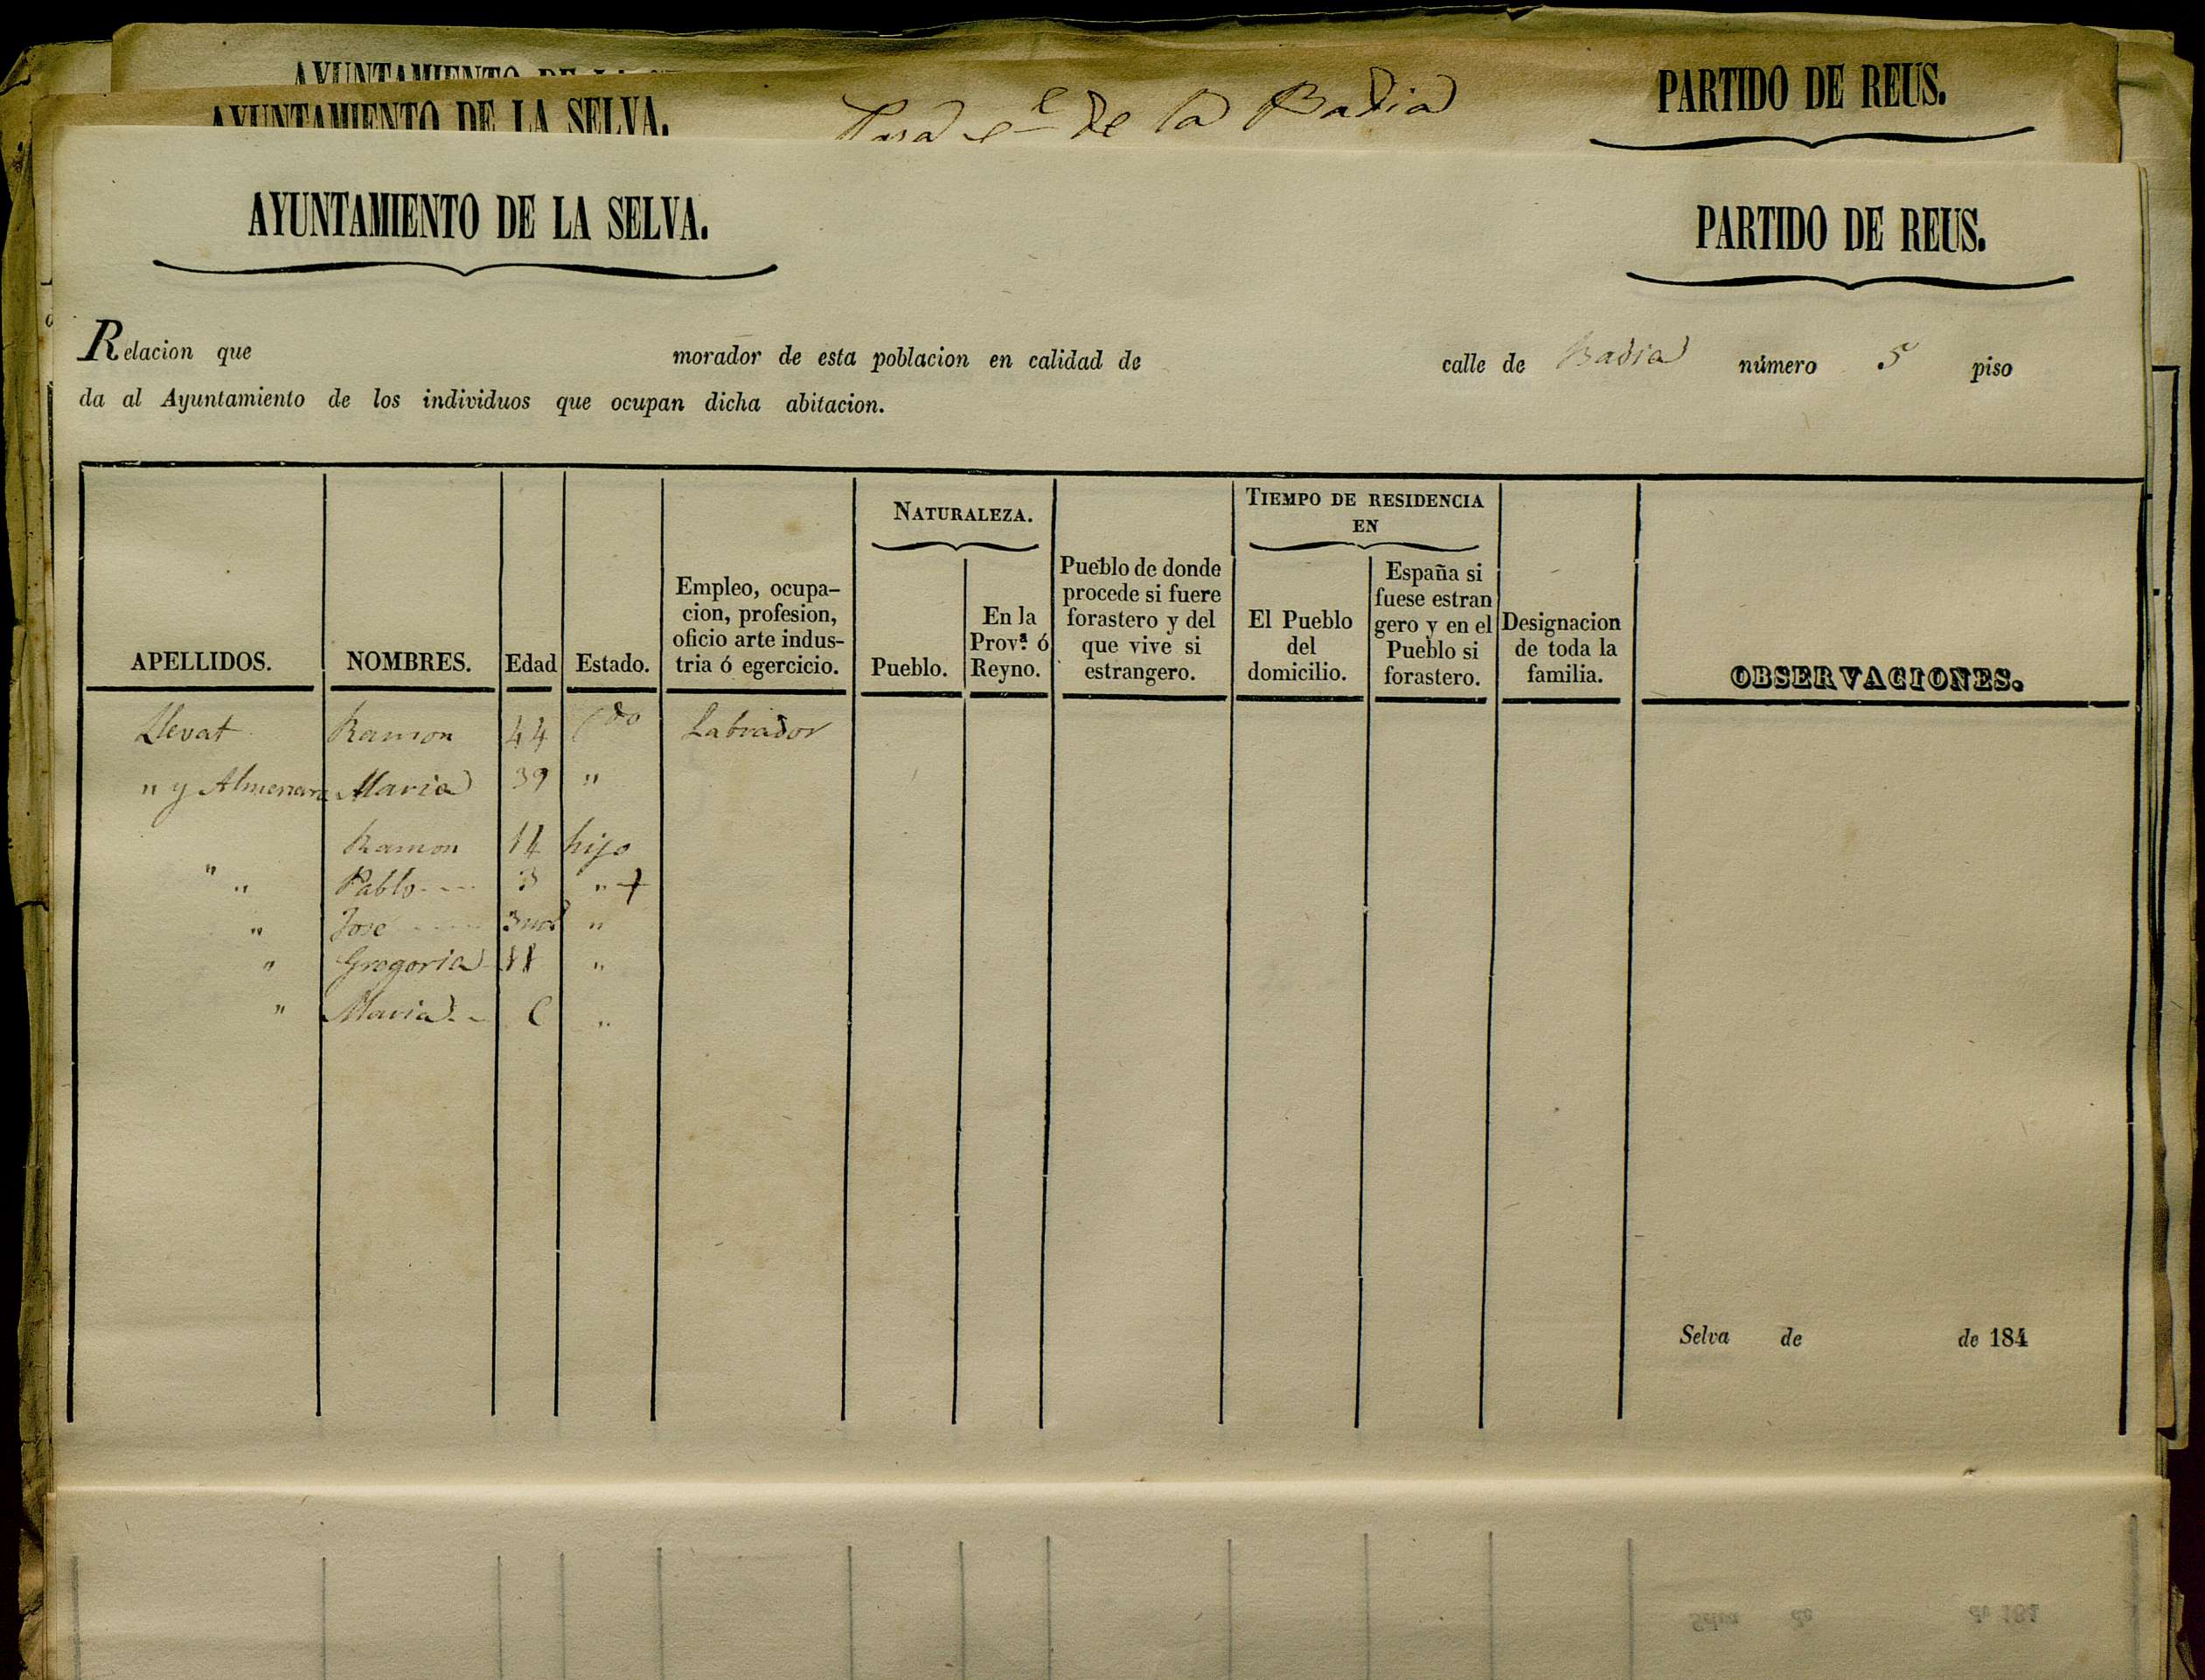 AYUNTAMIENTO DE LA
AYUNTAMIENTO DE LA SELVA. de la Badia PARTIDO DE REUS.
AYUNTAMIENTO DE LA SELVA. PARTIDO DE REUS.
Relacion que morador de esta poblacion en calidad de calle de Badia número 5 piso
da al Ayuntamiento de los individuos que ocupan dicha abitacion.
NATURALEZA. TIEMPO DE RESIDENCIA
EN
APELLIDOS.
NOMBRES.
Edad
Estado.
Empleo, ocupa-
cion, profesion,
oficio arte indus-
tria ó egercicio.
Pueblo.
En la
Provª ó
Reyno.
Pueblo de donde
procede si fuere
forastero y del
que vive si
estrangero.
El Pueblo
del
domicilio.
España si
fuese estran
gero y en el
Pueblo si
forastero.
Designacion
de toda la
familia.
OBSERVACIONES.
Llevat Ramon 44 Cdo Labrador
" y Almenara Maria 39 "
Ramon 14 hijo
" " Pablo 3 " +
" Jose 3 "
" Gregoria 11 "
" Maria "
Selva de de 184
Selva de de 184